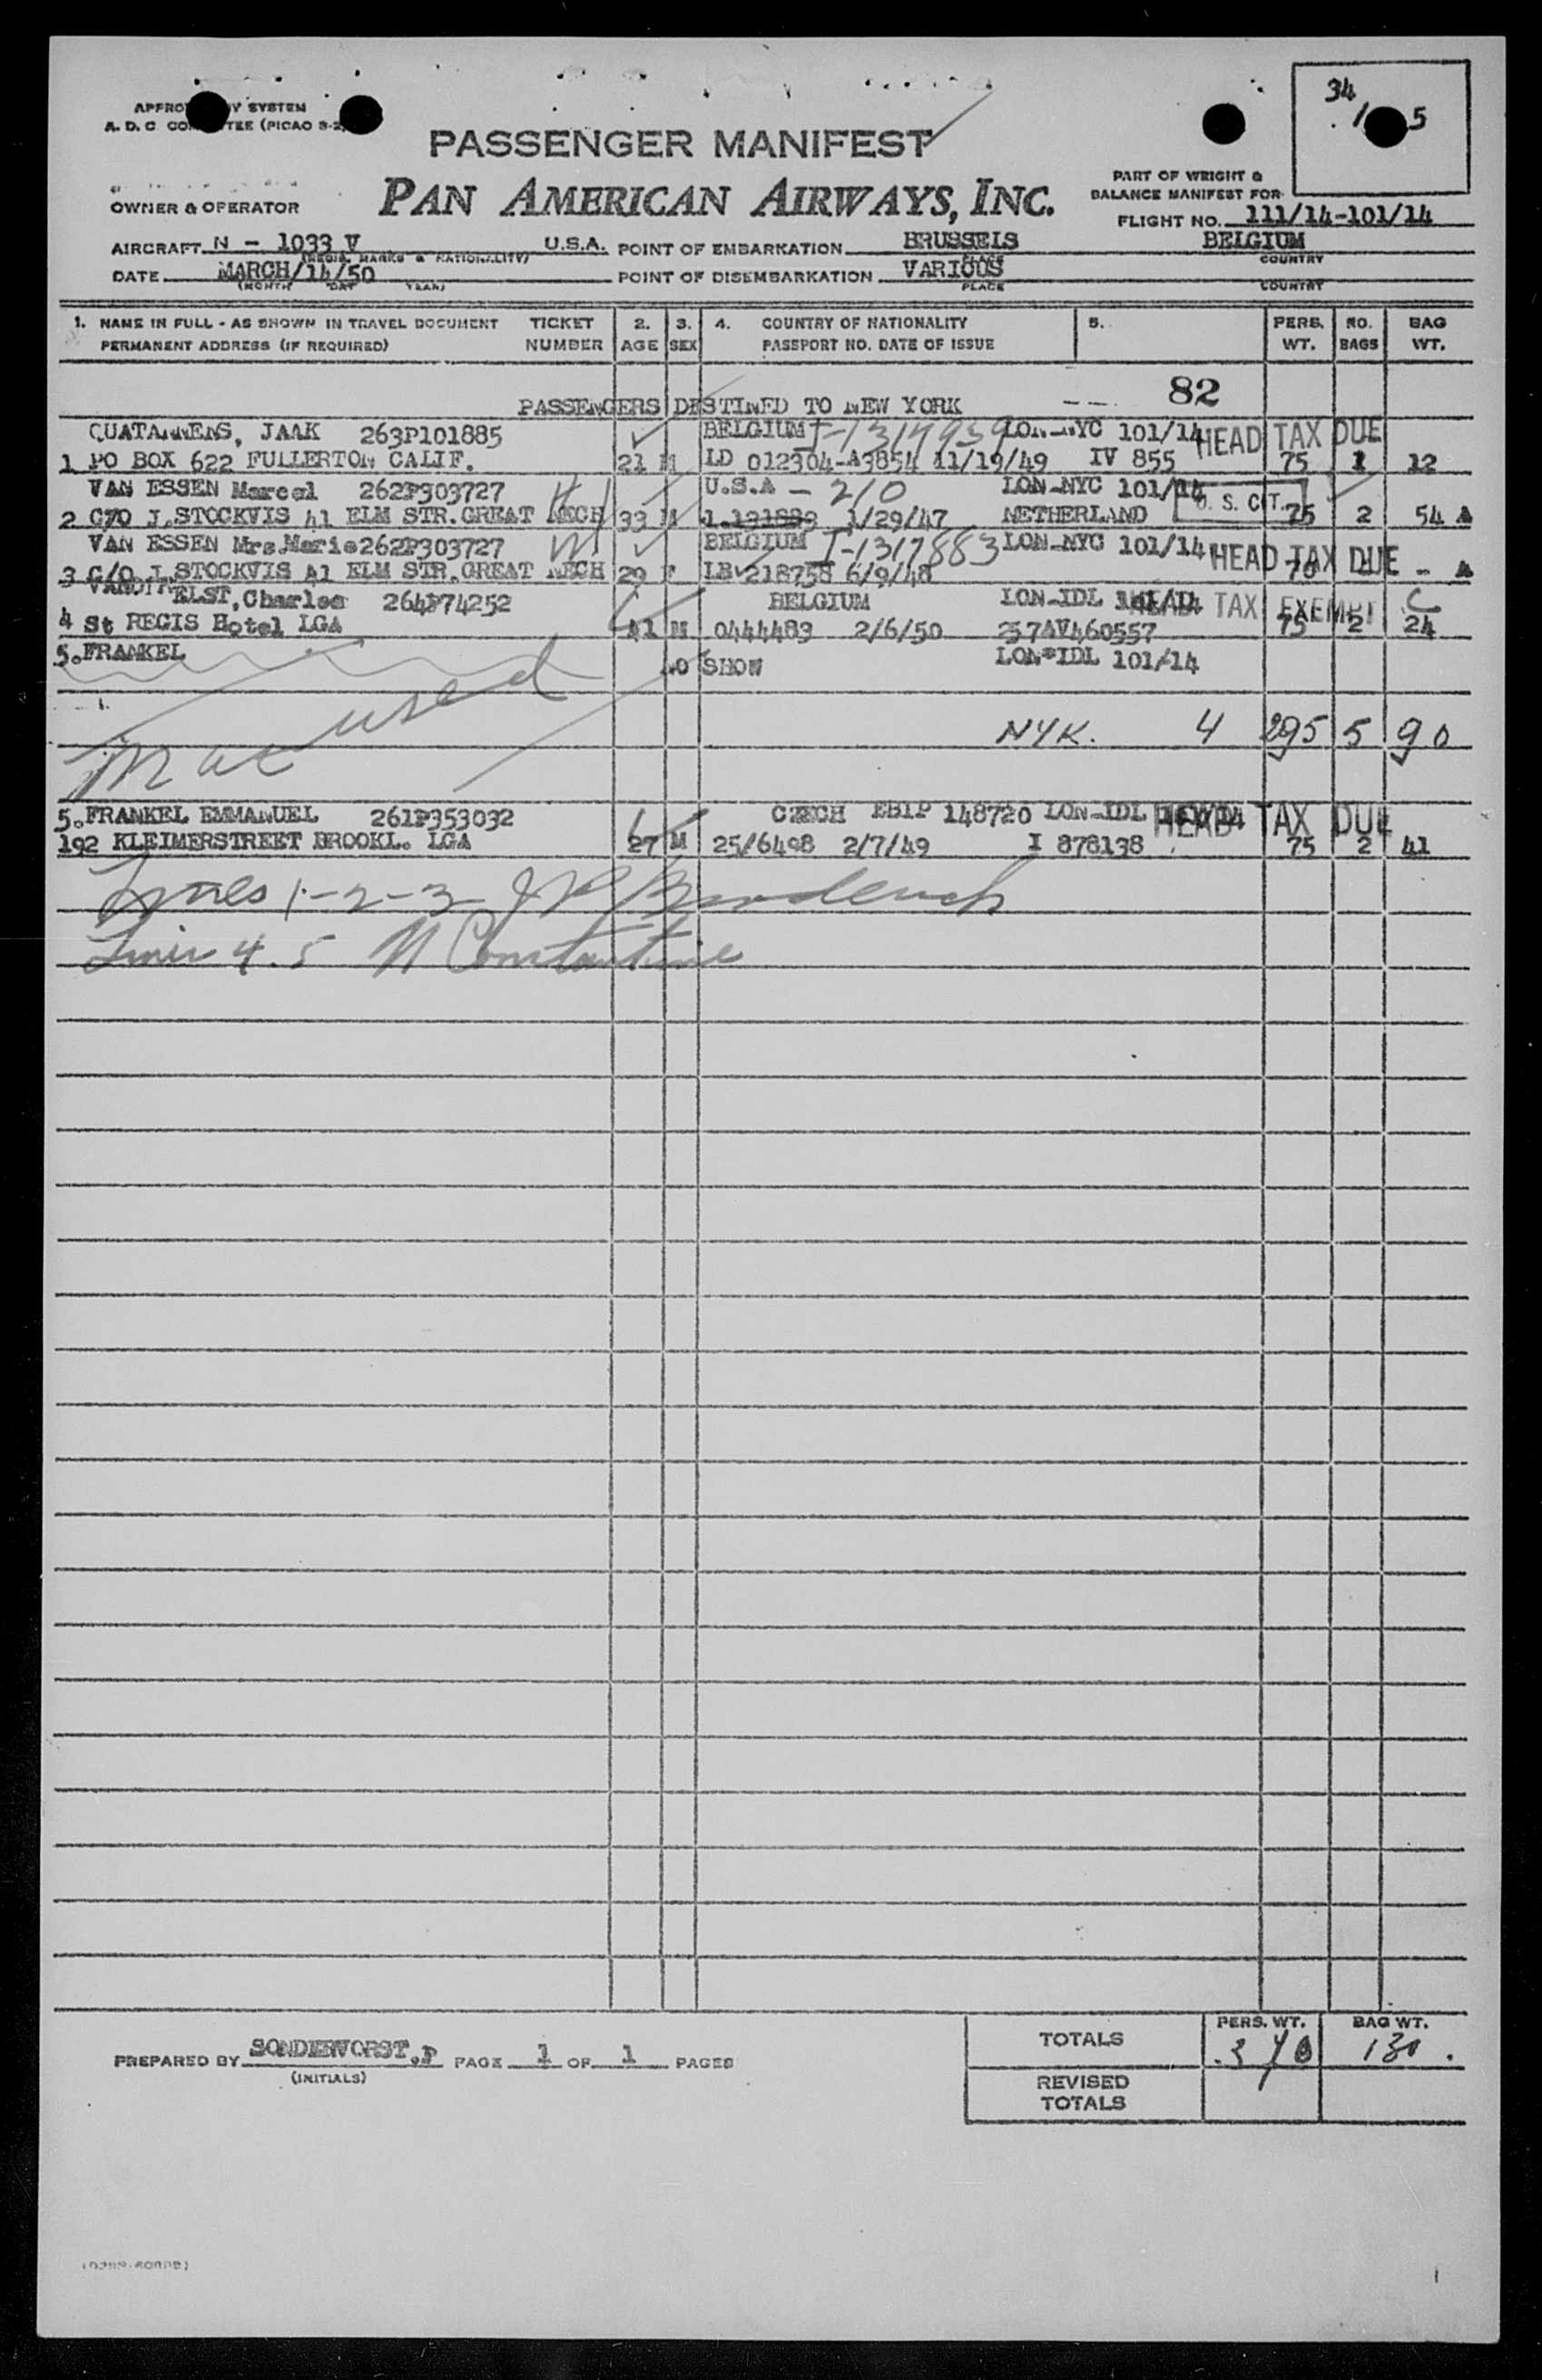 34
5
SYSTEM
PASSENGER MANIFEST
PAN AMERICAN AIRWAYS, INC.
PART OF WEIGHT &
BALANCE MANIFEST FOR
OWNER & OPERATOR
FLIGHT NO. 111/14-101/14
AIRCRAFT N - 1033 V U.S.A. POINT OF EMBARKATION BRUSSELS BELGIUM
(REGIS. MARKS & NATIONALITY) PLACE COUNTRY
DATE MARCH/14/50 POINT OF DISEMBARKATION VARIOUS
(MONTH DAY YEAR) PLACE COUNTRY
1. NAME IN FULL - AS SHOWN IN TRAVEL DOCUMENT TICKET 2. 3. 4. COUNTRY OF NATIONALITY 5. PERS. NO. BAG
PERMANENT ADDRESS (IF REQUIRED) NUMBER AGE SEX PASSPORT NO. DATE OF ISSUE WT. BAGS WT.
82
PASSENGERS DESTINED TO NEW YORK
QUATANNENS, JAAK 263P101885 BELGIUM LON-NYC 101/14 HEAD TAX DUE
1 PO BOX 622 FULLERTON CALIF. 21 M LD 012304-A3854 11/19/49 IV 855 75 1 12
VAN ESSEN Marcel 262P303727 U.S.A - 210 LON-NYC 101/14 U. S. CIT.
2 C/O J.STOCKVIS 41 ELM STR.GREAT NECH 33 M 1/29/47 NETHERLAND 75 2 54
VAN ESSEN Mrs.Marie 262P303727 BELGIUM I-1317883 LON-NYC 101/14 HEAD TAX DUE
3 C/O J.STOCKVIS 41 ELM STR.GREAT NECH 29 F 218758 6/9/48 70 -
ELST, Charles 264P74252 BELGIUM LON-IDL HEAD TAX EXEMPT C
4 St REGIS Hotel LGA 41 M 0444483 2/6/50 257AV460557 75 2 24
5.FRANKEL NO SHOW LON-IDL 101/14
used
NYK. 4 295 5 90
5.FRANKEL EMMANUEL 261P353032 CZECH EBIP 148720 LON-IDL HEAD TAX DUE
192 KLEIMERSTREET BROOKL. LGA 27 M 25/6498 2/7/49 I 878138 75 2 41
Lines 1-2-3
Lines 4.5 N Constantine
TOTALS PERS. WT. BAG WT.
370
PREPARED BY SONDERVORST.P PAGE 1 OF 1 PAGES
(INITIALS)
REVISED
TOTALS